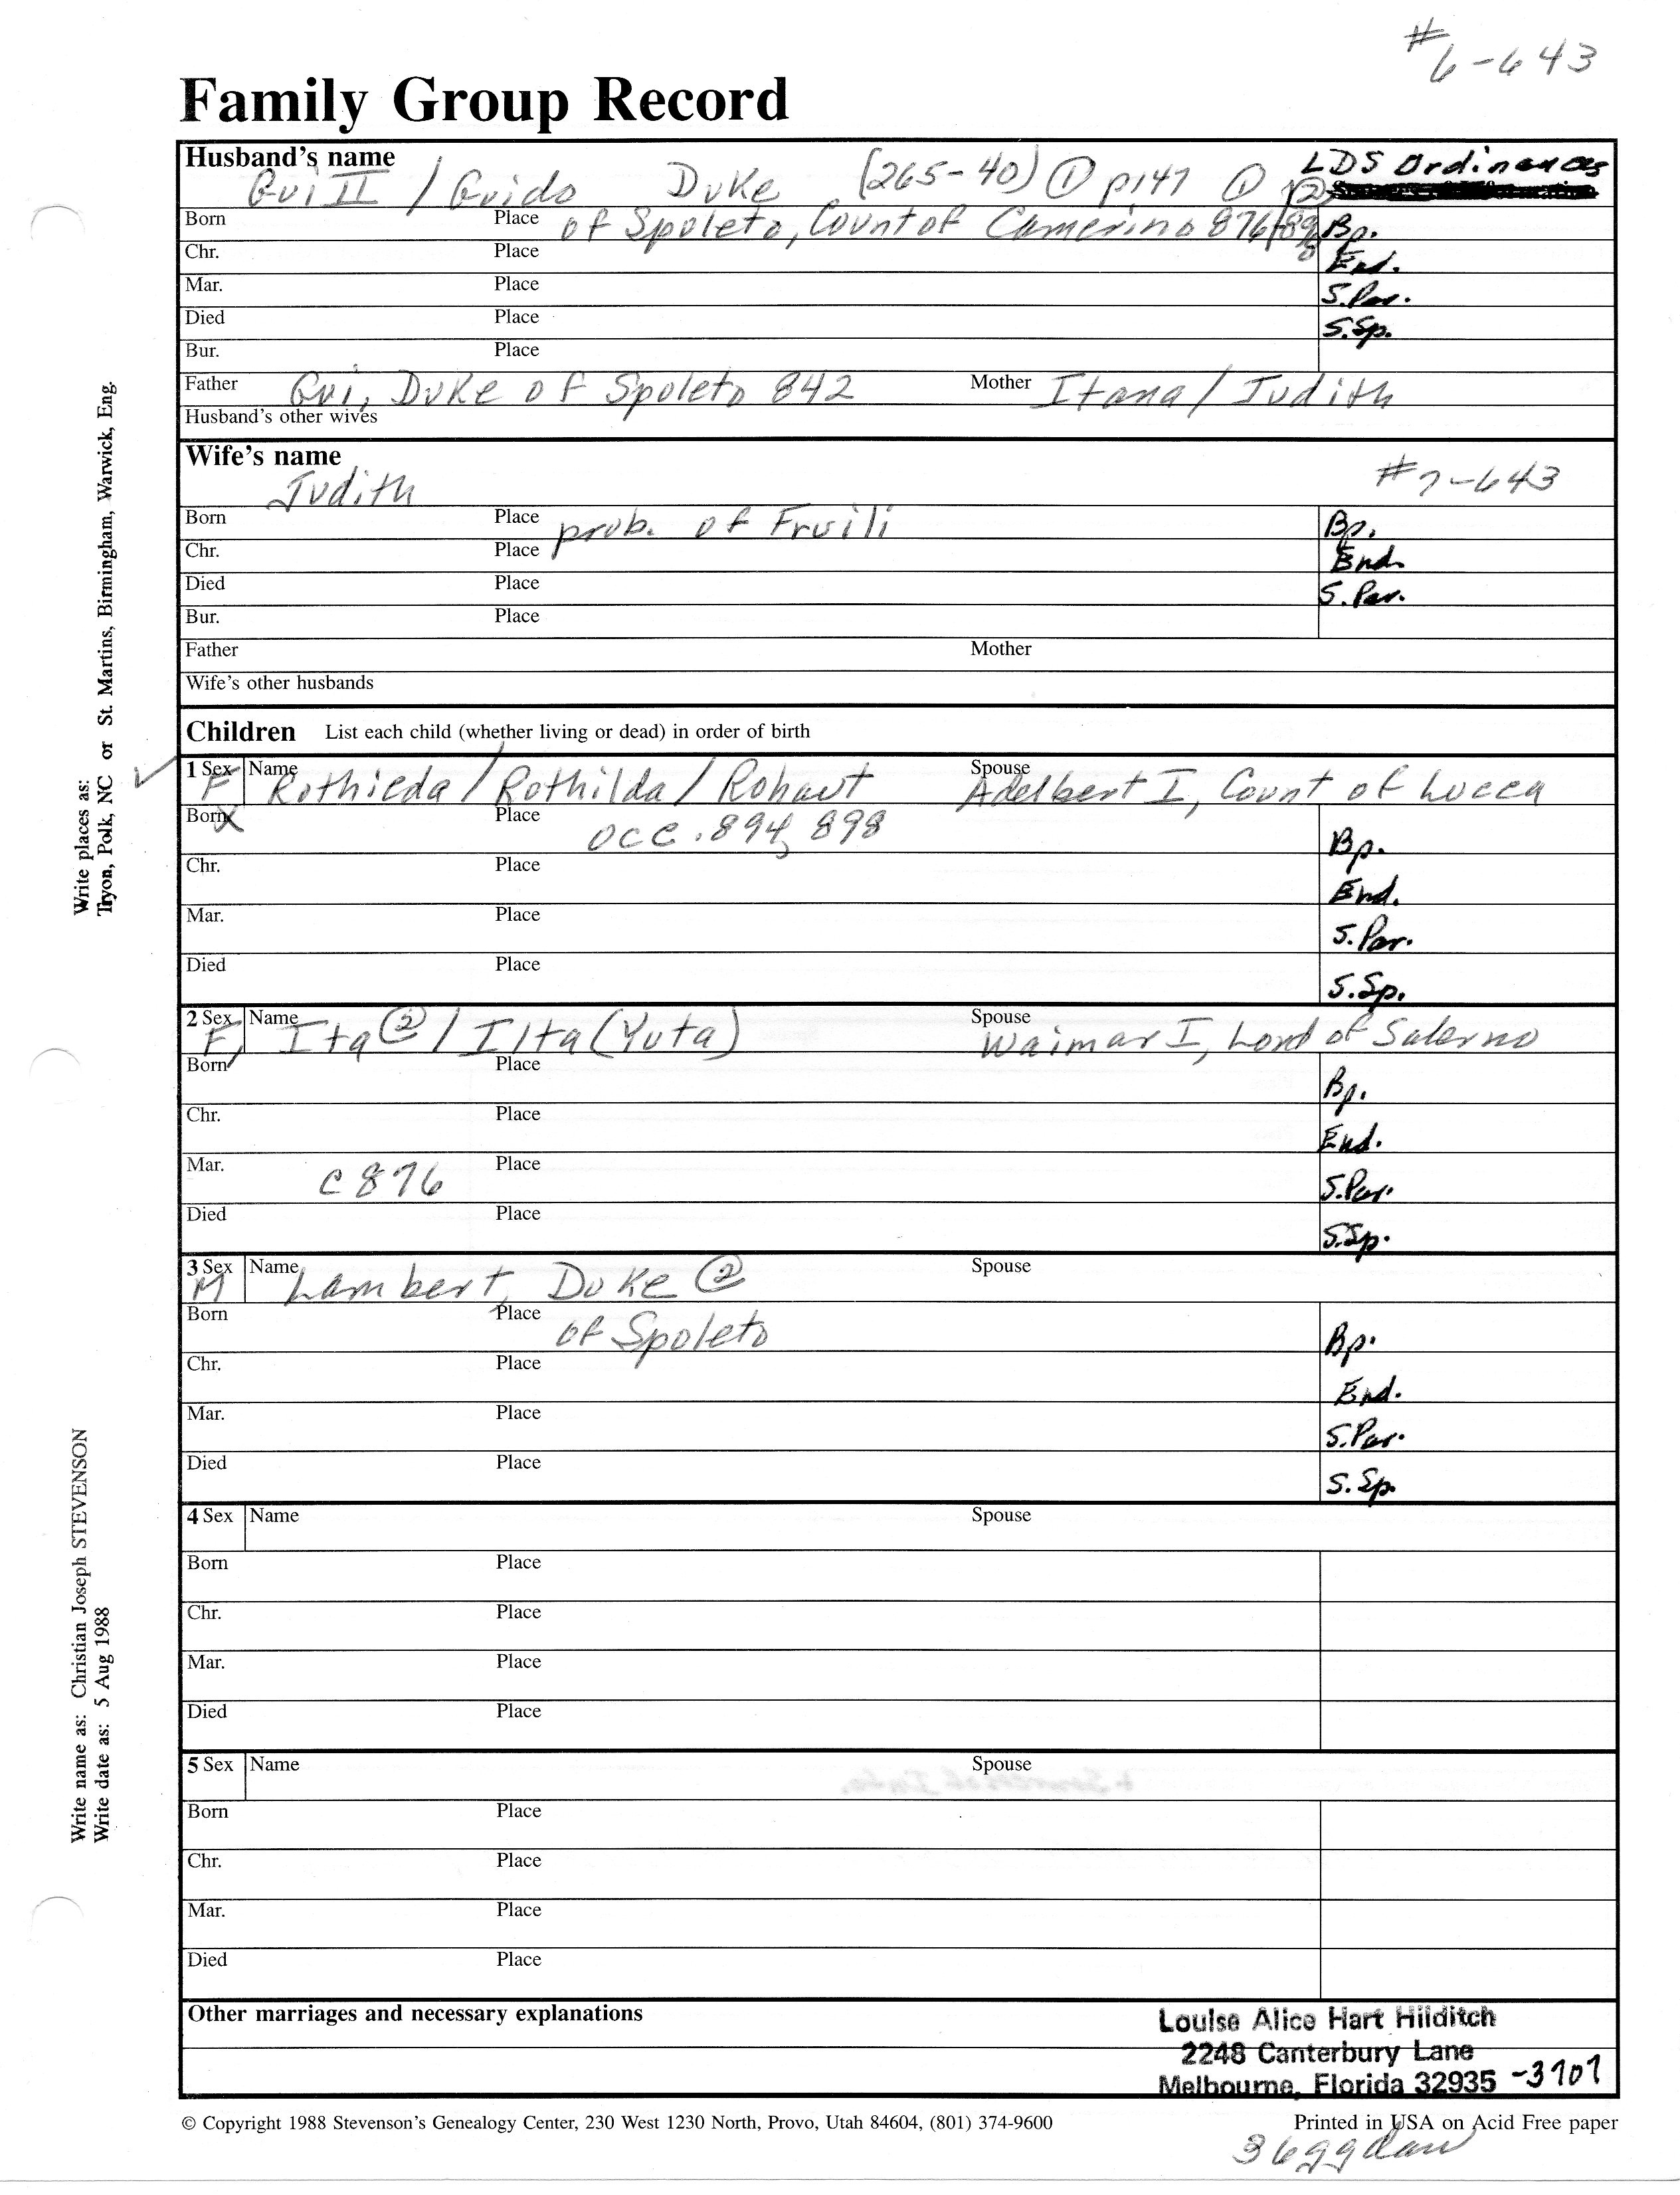 # 6-643
Family Group Record
Husband's name Gui II / Guido Duke (265-40) ① p147 ① ② LDS Ordinances
Born Place of Spoleto, Count of Camerino 876/ Bp.
Chr. Place End.
Mar. Place S.Par.
Died Place S.Sp.
Bur. Place
Father Gui, Duke of Spoleto 842 Mother Itana / Judith
Husband's other wives
Wife's name Judith #7-643
Born Place prob. of Fruili Bp.
Chr. Place End.
Died Place S. Par.
Bur. Place
Father Mother
Wife's other husbands
Children List each child (whether living or dead) in order of birth
1 Sex F Name Rothieda / Rothilda / Rohaut Spouse Adelbert I, Count of Lucca
Born X Place occ. 894, 898 Bp.
Chr. Place End.
Mar. Place S. Par.
Died Place S.Sp.
2 Sex F, Name Ita ② / Ilta (Yuta) Spouse Waimar I, Lord of Salerno
Born Place Bp.
Chr. Place End.
Mar. c 876 Place S.Par.
Died Place S.Sp.
3 Sex M Name Lambert, Duke ② Spouse
Born Place of Spoleto Bp.
Chr. Place End.
Mar. Place S.Par.
Died Place S. Sp.
4 Sex Name Spouse
Born Place
Chr. Place
Mar. Place
Died Place
5 Sex Name Spouse
Born Place
Chr. Place
Mar. Place
Died Place
Other marriages and necessary explanations
Louise Alice Hart Hilditch
2248 Canterbury Lane
Melbourne, Florida 32935 -3707
© Copyright 1988 Stevenson's Genealogy Center, 230 West 1230 North, Provo, Utah 84604, (801) 374-9600 Printed in USA on Acid Free paper
Write places as:
Tryon, Polk, NC or St. Martins, Birmingham, Warwick, Eng.
Write name as: Christian Joseph STEVENSON
Write date as: 5 Aug 1988